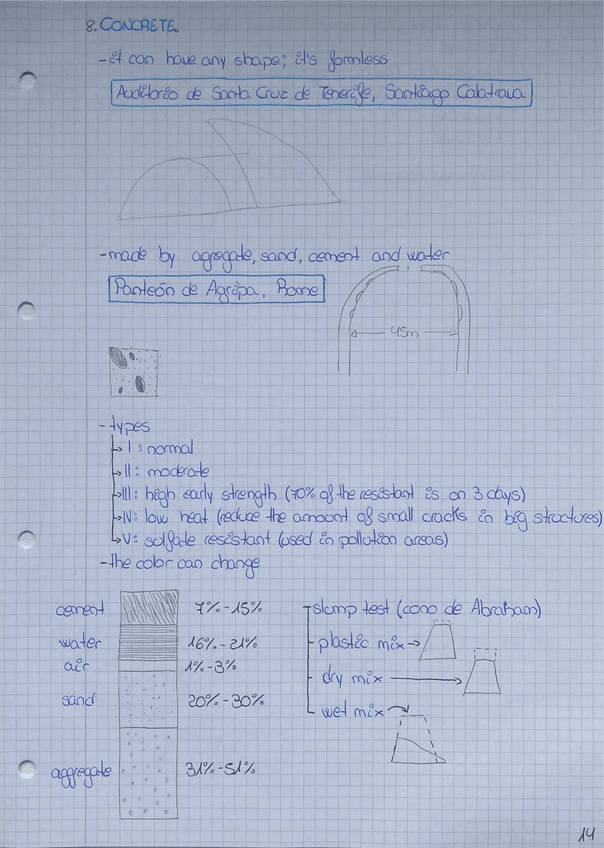 8. CONCRETE.
- it can have any shape; it's formless
Auditorio de Santa Cruz de Tenerife, Santiago Calatrava
- made by agregate, sand, cement and water
Panteón de Agripa, Rome
45m
- types
I: normal
II: moderate
III: high early strength (70% of the resistant is on 3 days)
IV: low heat (reduce the amount of small cracks in big structures)
V: sulfate resistant (used in pollution areas)
- the color can change
cement 7%-15%
water 16%-21%
air 1%-3%
sand 20%-30%
aggregate 31%-51%
slump test (cono de Abraham)
plastic mix
dry mix
wet mix
14